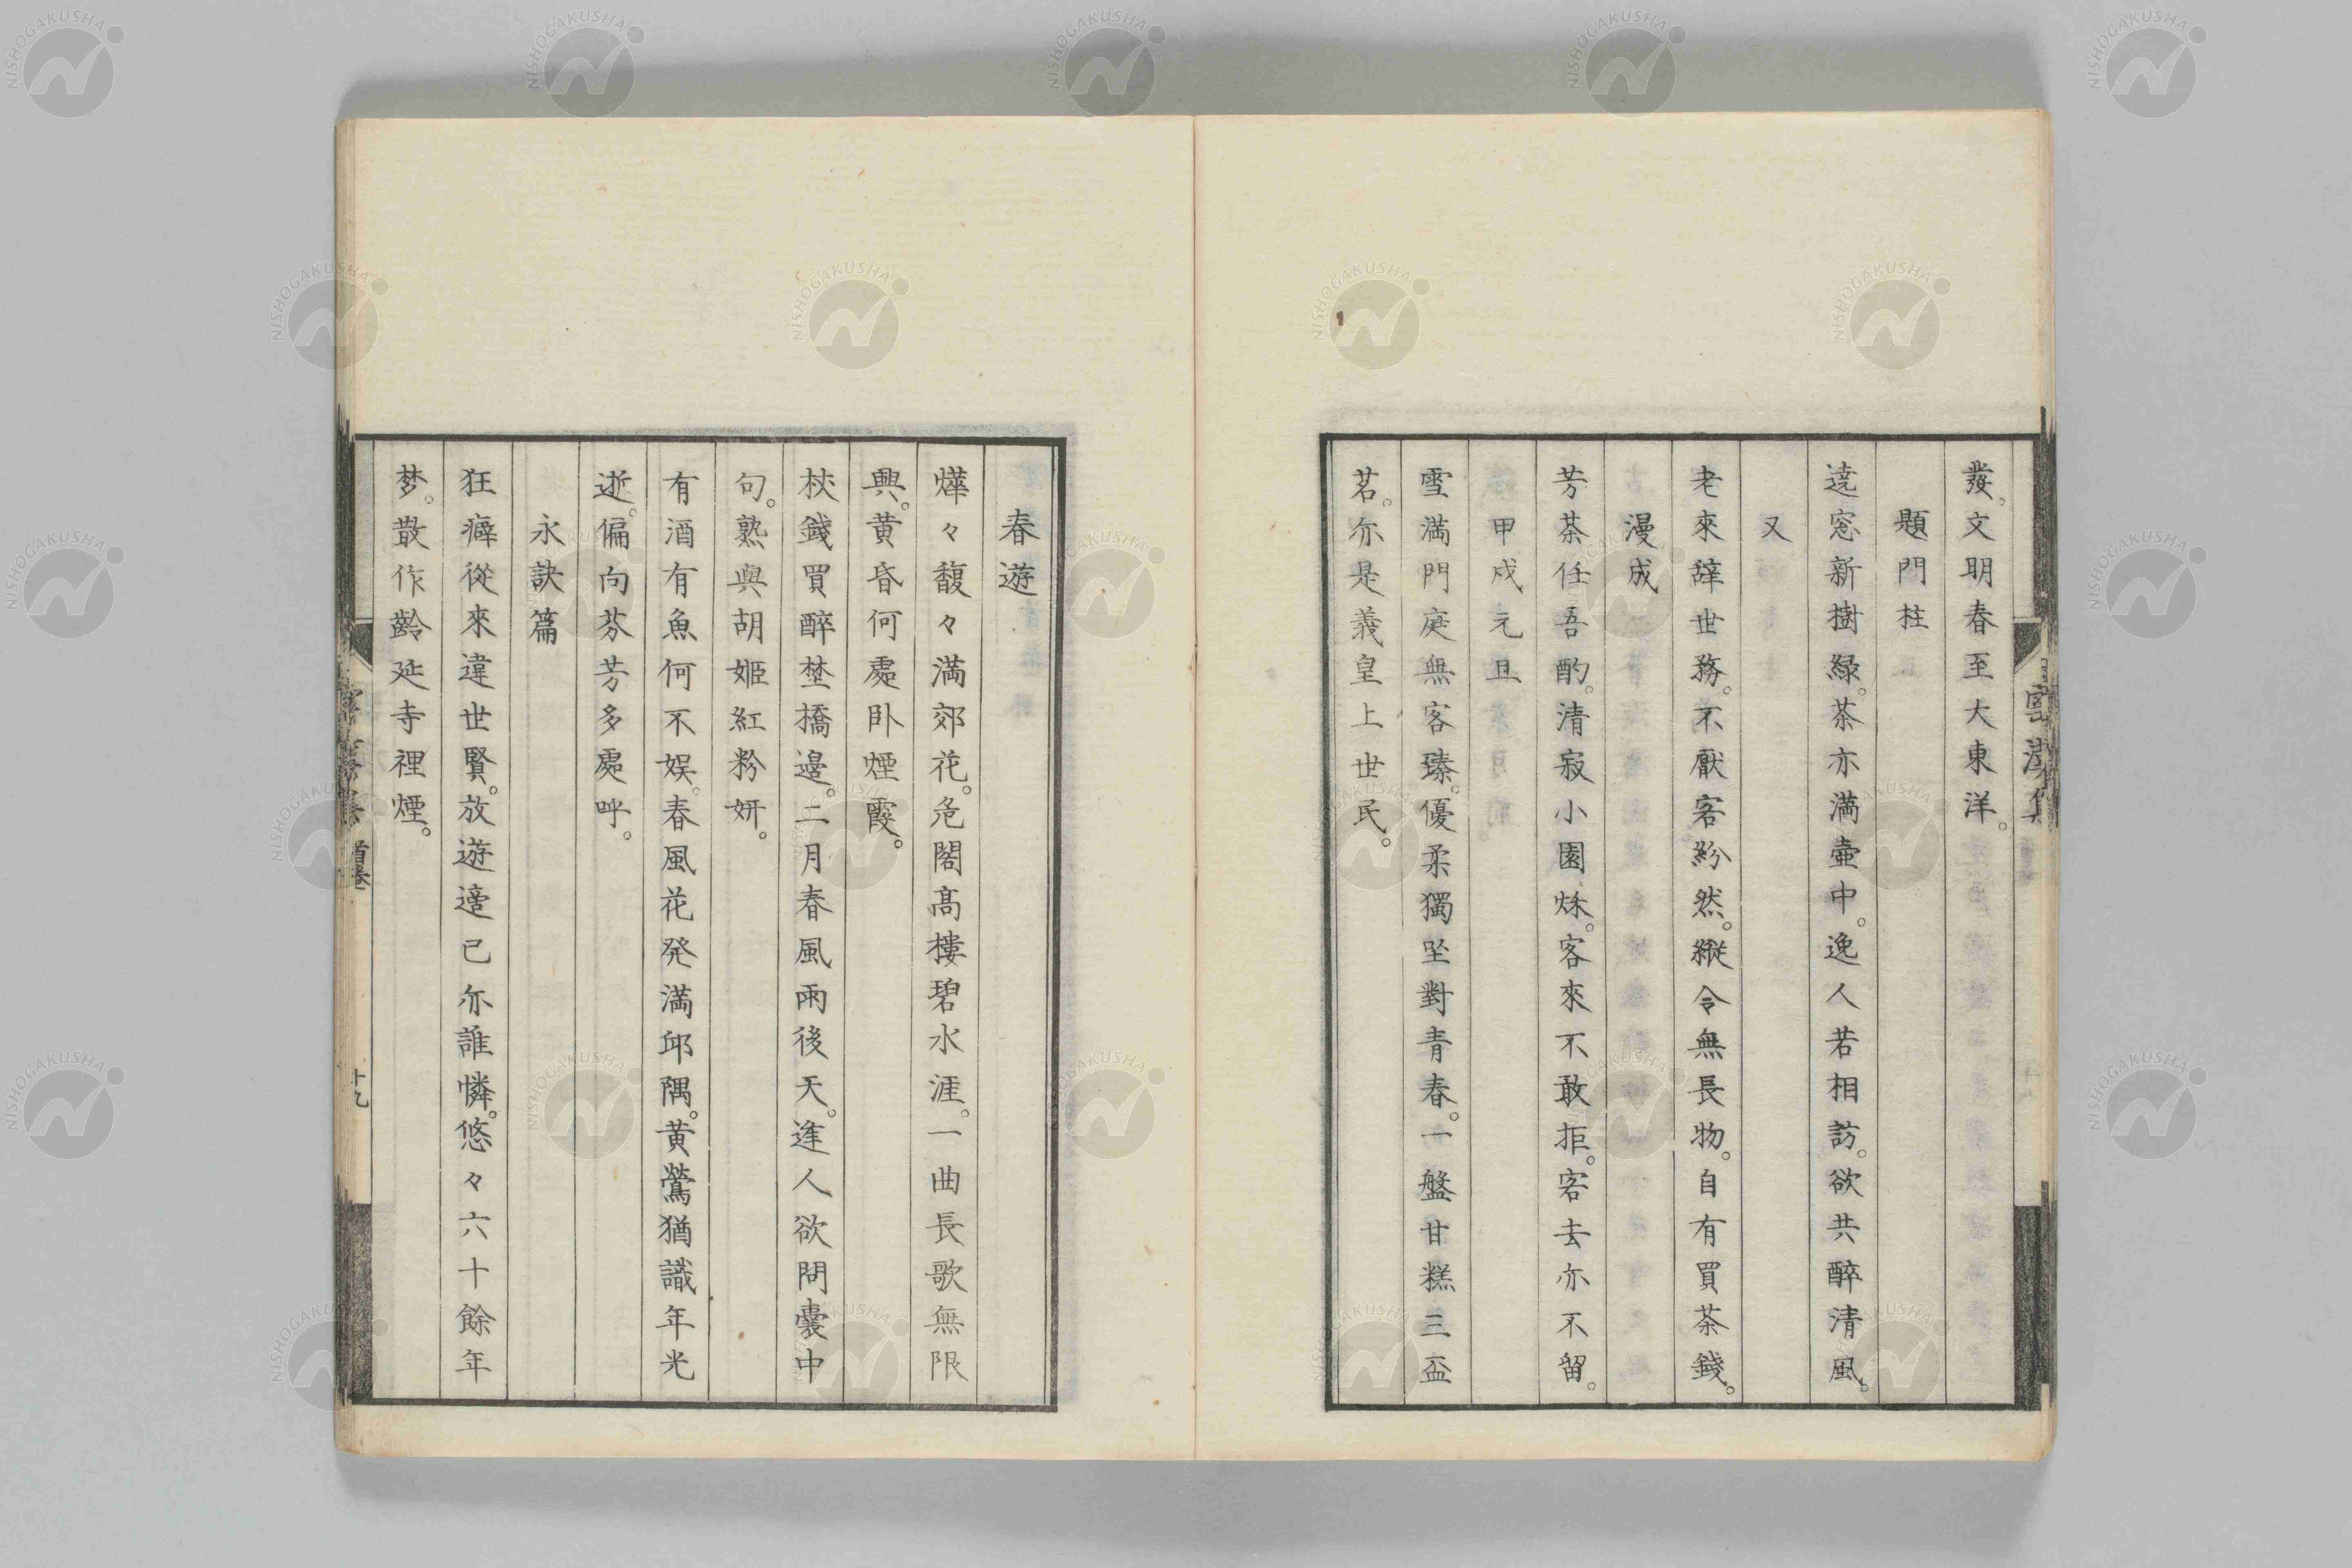 發。文明春至大東洋。
題門柱
遶窓新樹緑。茶亦満壷中。逸人若相訪。欲共醉清風。
又
老來辭世務。不厭客紛然。縦令無長物。自有買茶錢。
漫成
芳茶任吾酌。清寂小園秌。客來不敢拒。客去亦不留。
甲戍元旦
雪満門庭無客臻。優柔獨坐對青春。一盤甘糕三盃
茗。亦是義皇上世民。
春遊
燁々馥々満郊花。危閣髙樓碧水涯。一曲長歌無限
興。黄昏何處卧煙霞。
杖錢買醉埜橋邉。二月春風雨後天。逢人欲問囊中
句。熟與胡姬紅粉妍。
有酒有魚何不娯。春風花発満邱隅。黄鶯猶識年光
逝。偏向芬芳多處呼。
永訣篇
狂癖從來違世賢。放遊遊已亦誰憐。悠々六十餘年
梦。散作齡延寺裡煙。
首巻
十九
NISHOGAKUSHA